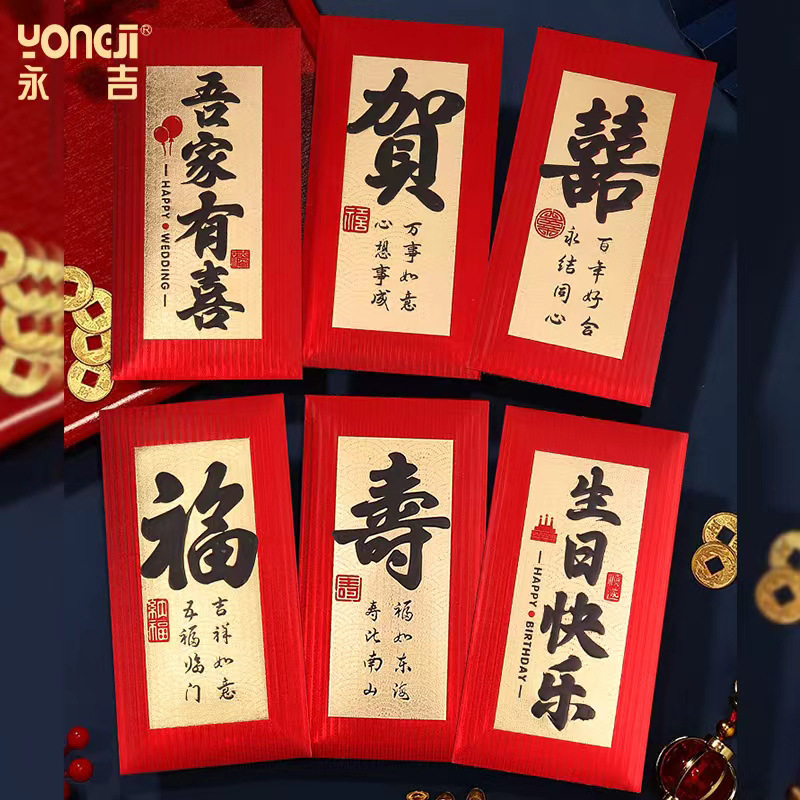 YONGJI®
永吉
吾家有喜
HAPPY WEDDING
賀
万事如意
心想事成
福
囍
百年好合
永结同心
福
吉祥如意
五福临门
納福
壽
福如东海
寿比南山
生日快乐
HAPPY BIRTHDAY